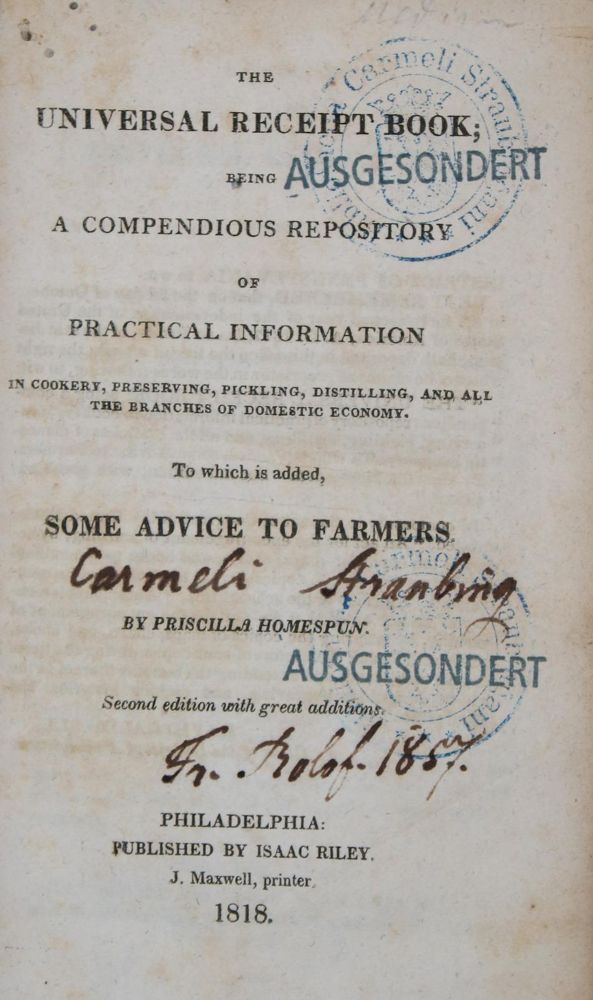 THE
UNIVERSAL RECEIPT BOOK;
BEING
AUSGESONDERT
A COMPENDIOUS REPOSITORY
OF
PRACTICAL INFORMATION
IN COOKERY, PRESERVING, PICKLING, DISTILLING, AND ALL
THE BRANCHES OF DOMESTIC ECONOMY.
To which is added,
SOME ADVICE TO FARMERS.
Carmeli Straubing
BY PRISCILLA HOMESPUN.
AUSGESONDERT
Second edition with great additions.
Fr. Rolof. 1857.
PHILADELPHIA:
PUBLISHED BY ISAAC RILEY.
J. Maxwell, printer.
1818.